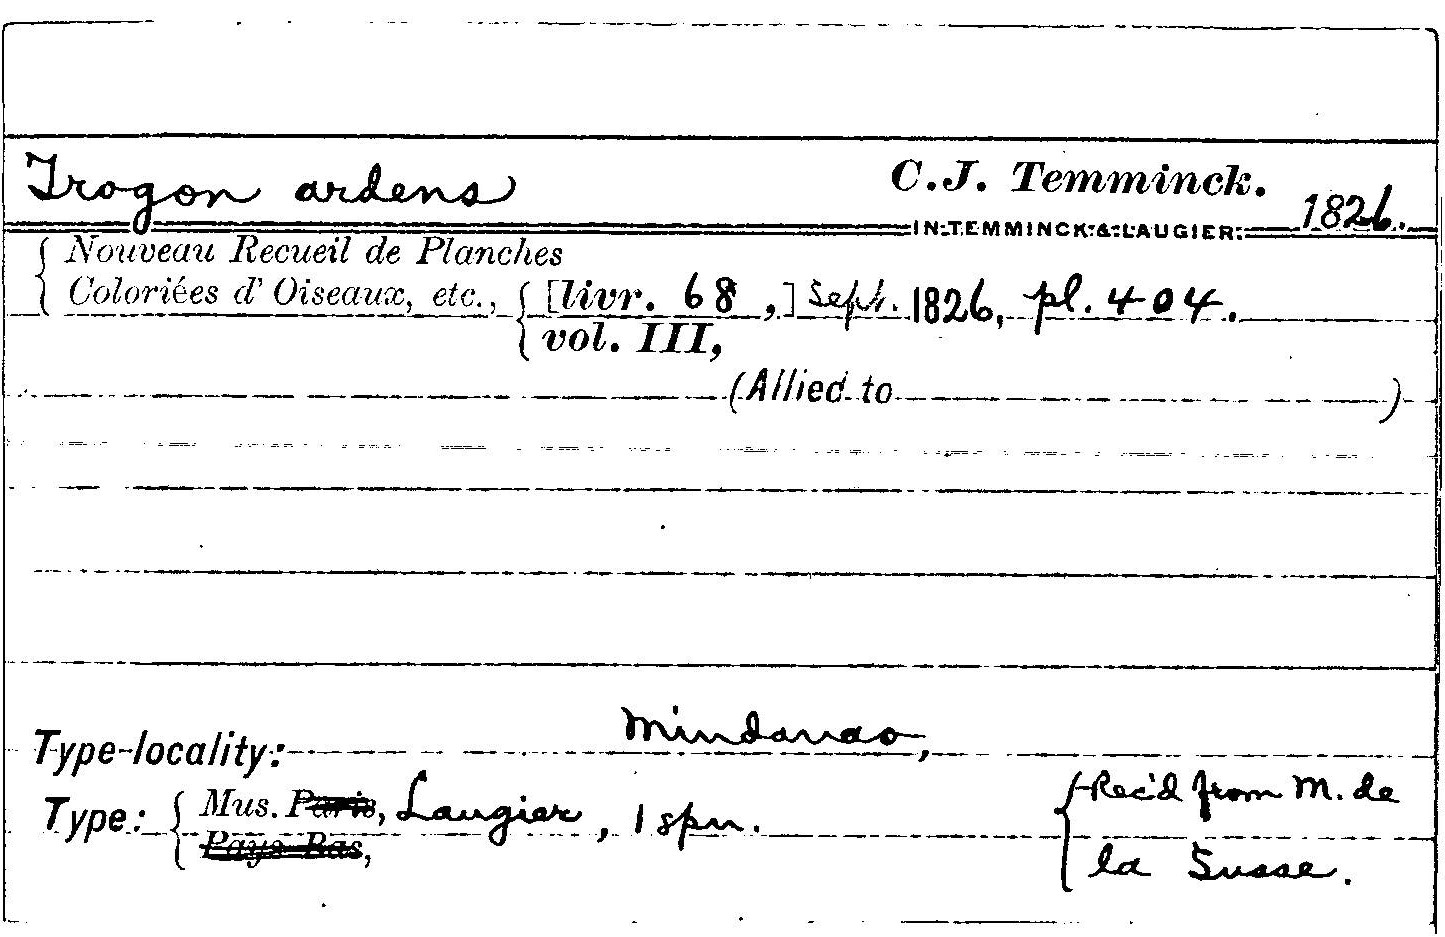 Trogon ardens C.J. Temminck. 1826.
IN TEMMINCK & LAUGIER:
{ Nouveau Recueil de Planches
Coloriées d' Oiseaux, etc., { [livr. 68,] Sept. 1826, pl. 404.
vol. III,
(Allied to )
Type-locality: Mindanao,
Type: { Mus. Paris, Laugier, 1 spn. { Rec'd from M. de
Pays Bas, la Susse.